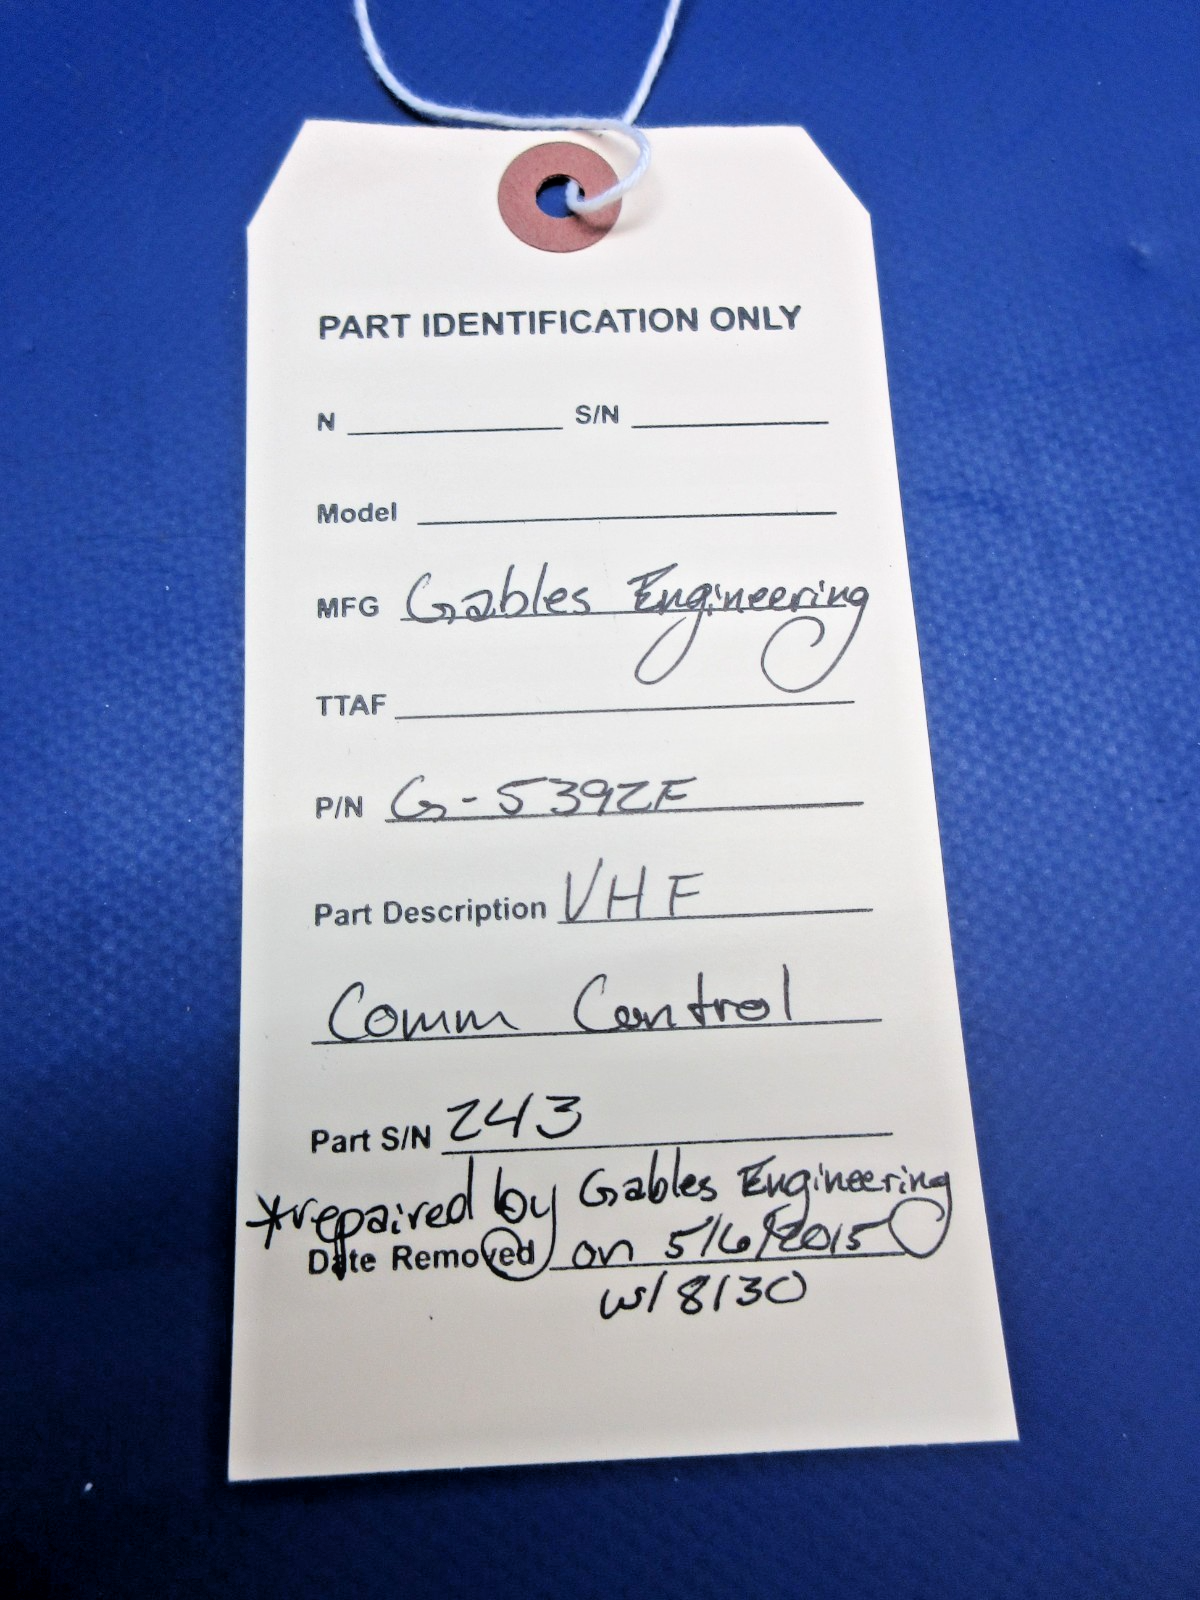 PART IDENTIFICATION ONLY
N ____________ S/N ____________
Model ____________
MFG Gables Engineering
TTAF ____________
P/N G-5392F
Part Description VHF
Comm Control
Part S/N 243
*repaired by Gables Engineering
Date Removed on 5/6/2015
w/ 8130